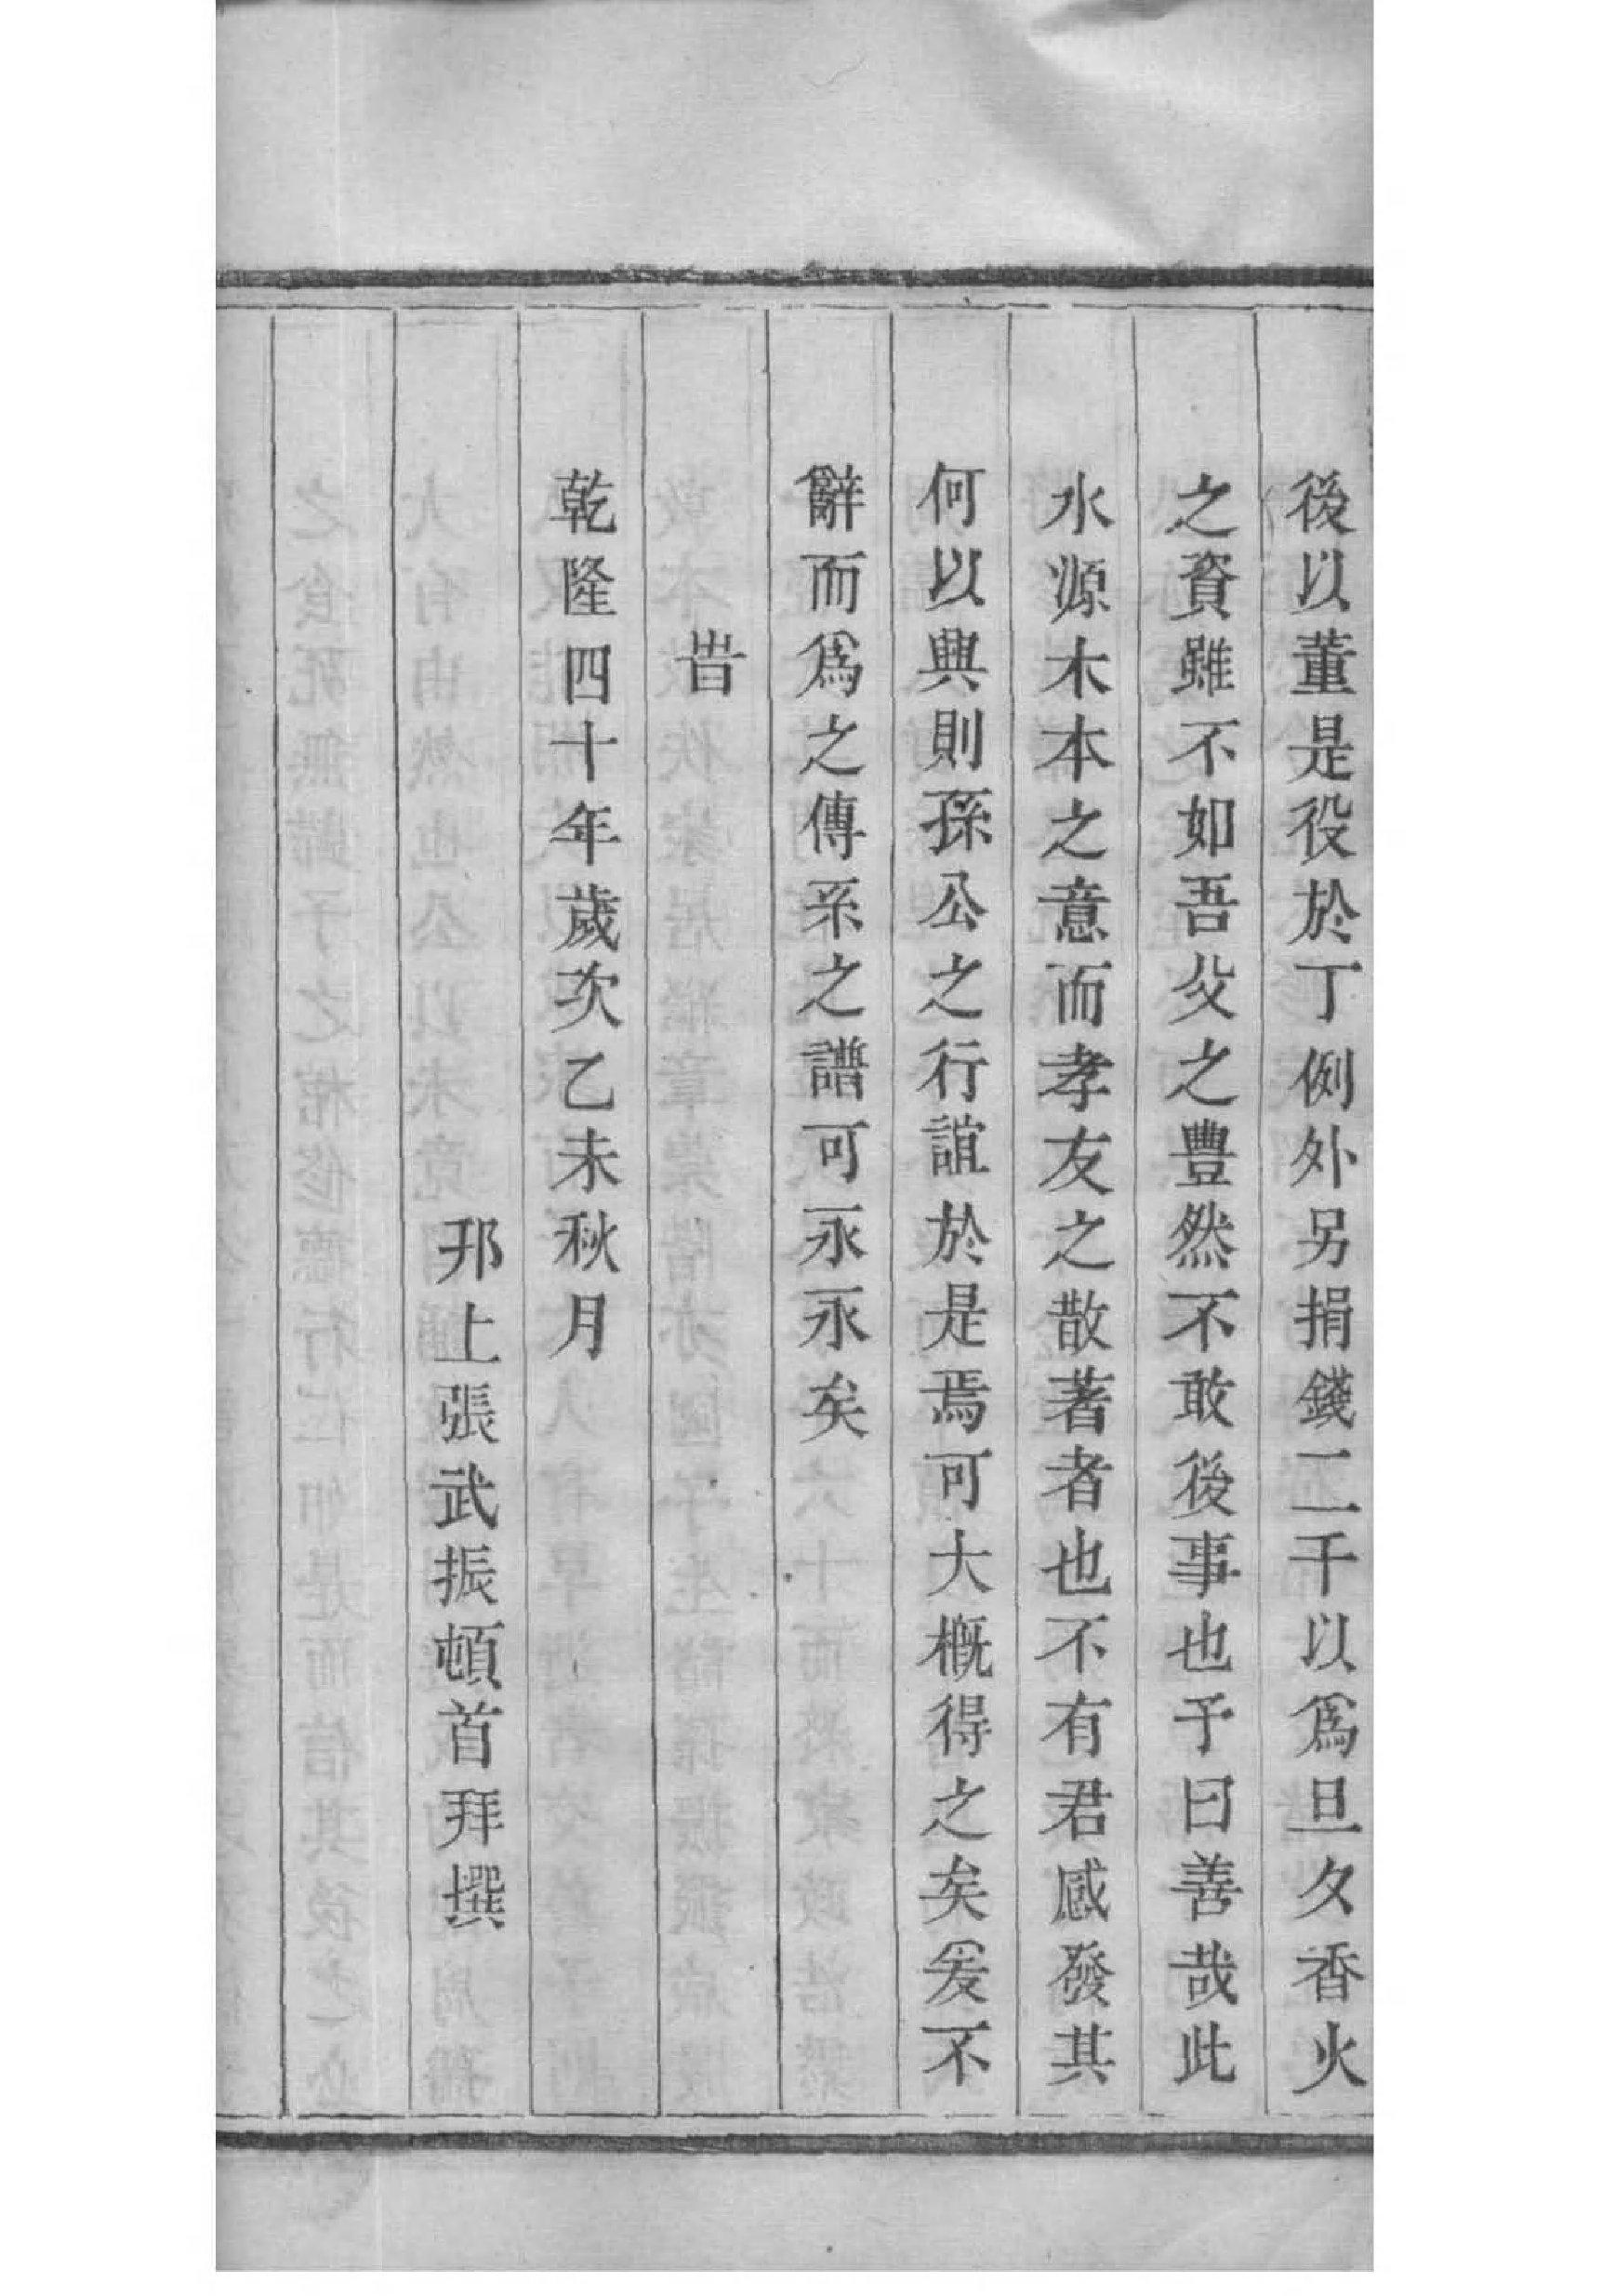 後以董是役於丁例外另捐錢二千以爲旦夂香火
之資雖不如吾父之豐然不敢後事也予曰善哉此
水源木本之意而孝友之散著者也不有君感發其
何以興則孫公之行誼於是焉可大槪得之矣爰不
辭而爲之傳系之譜可永永矣
旹
乾隆四十年歲次乙未秋月
邘上張武振頓首拜撰